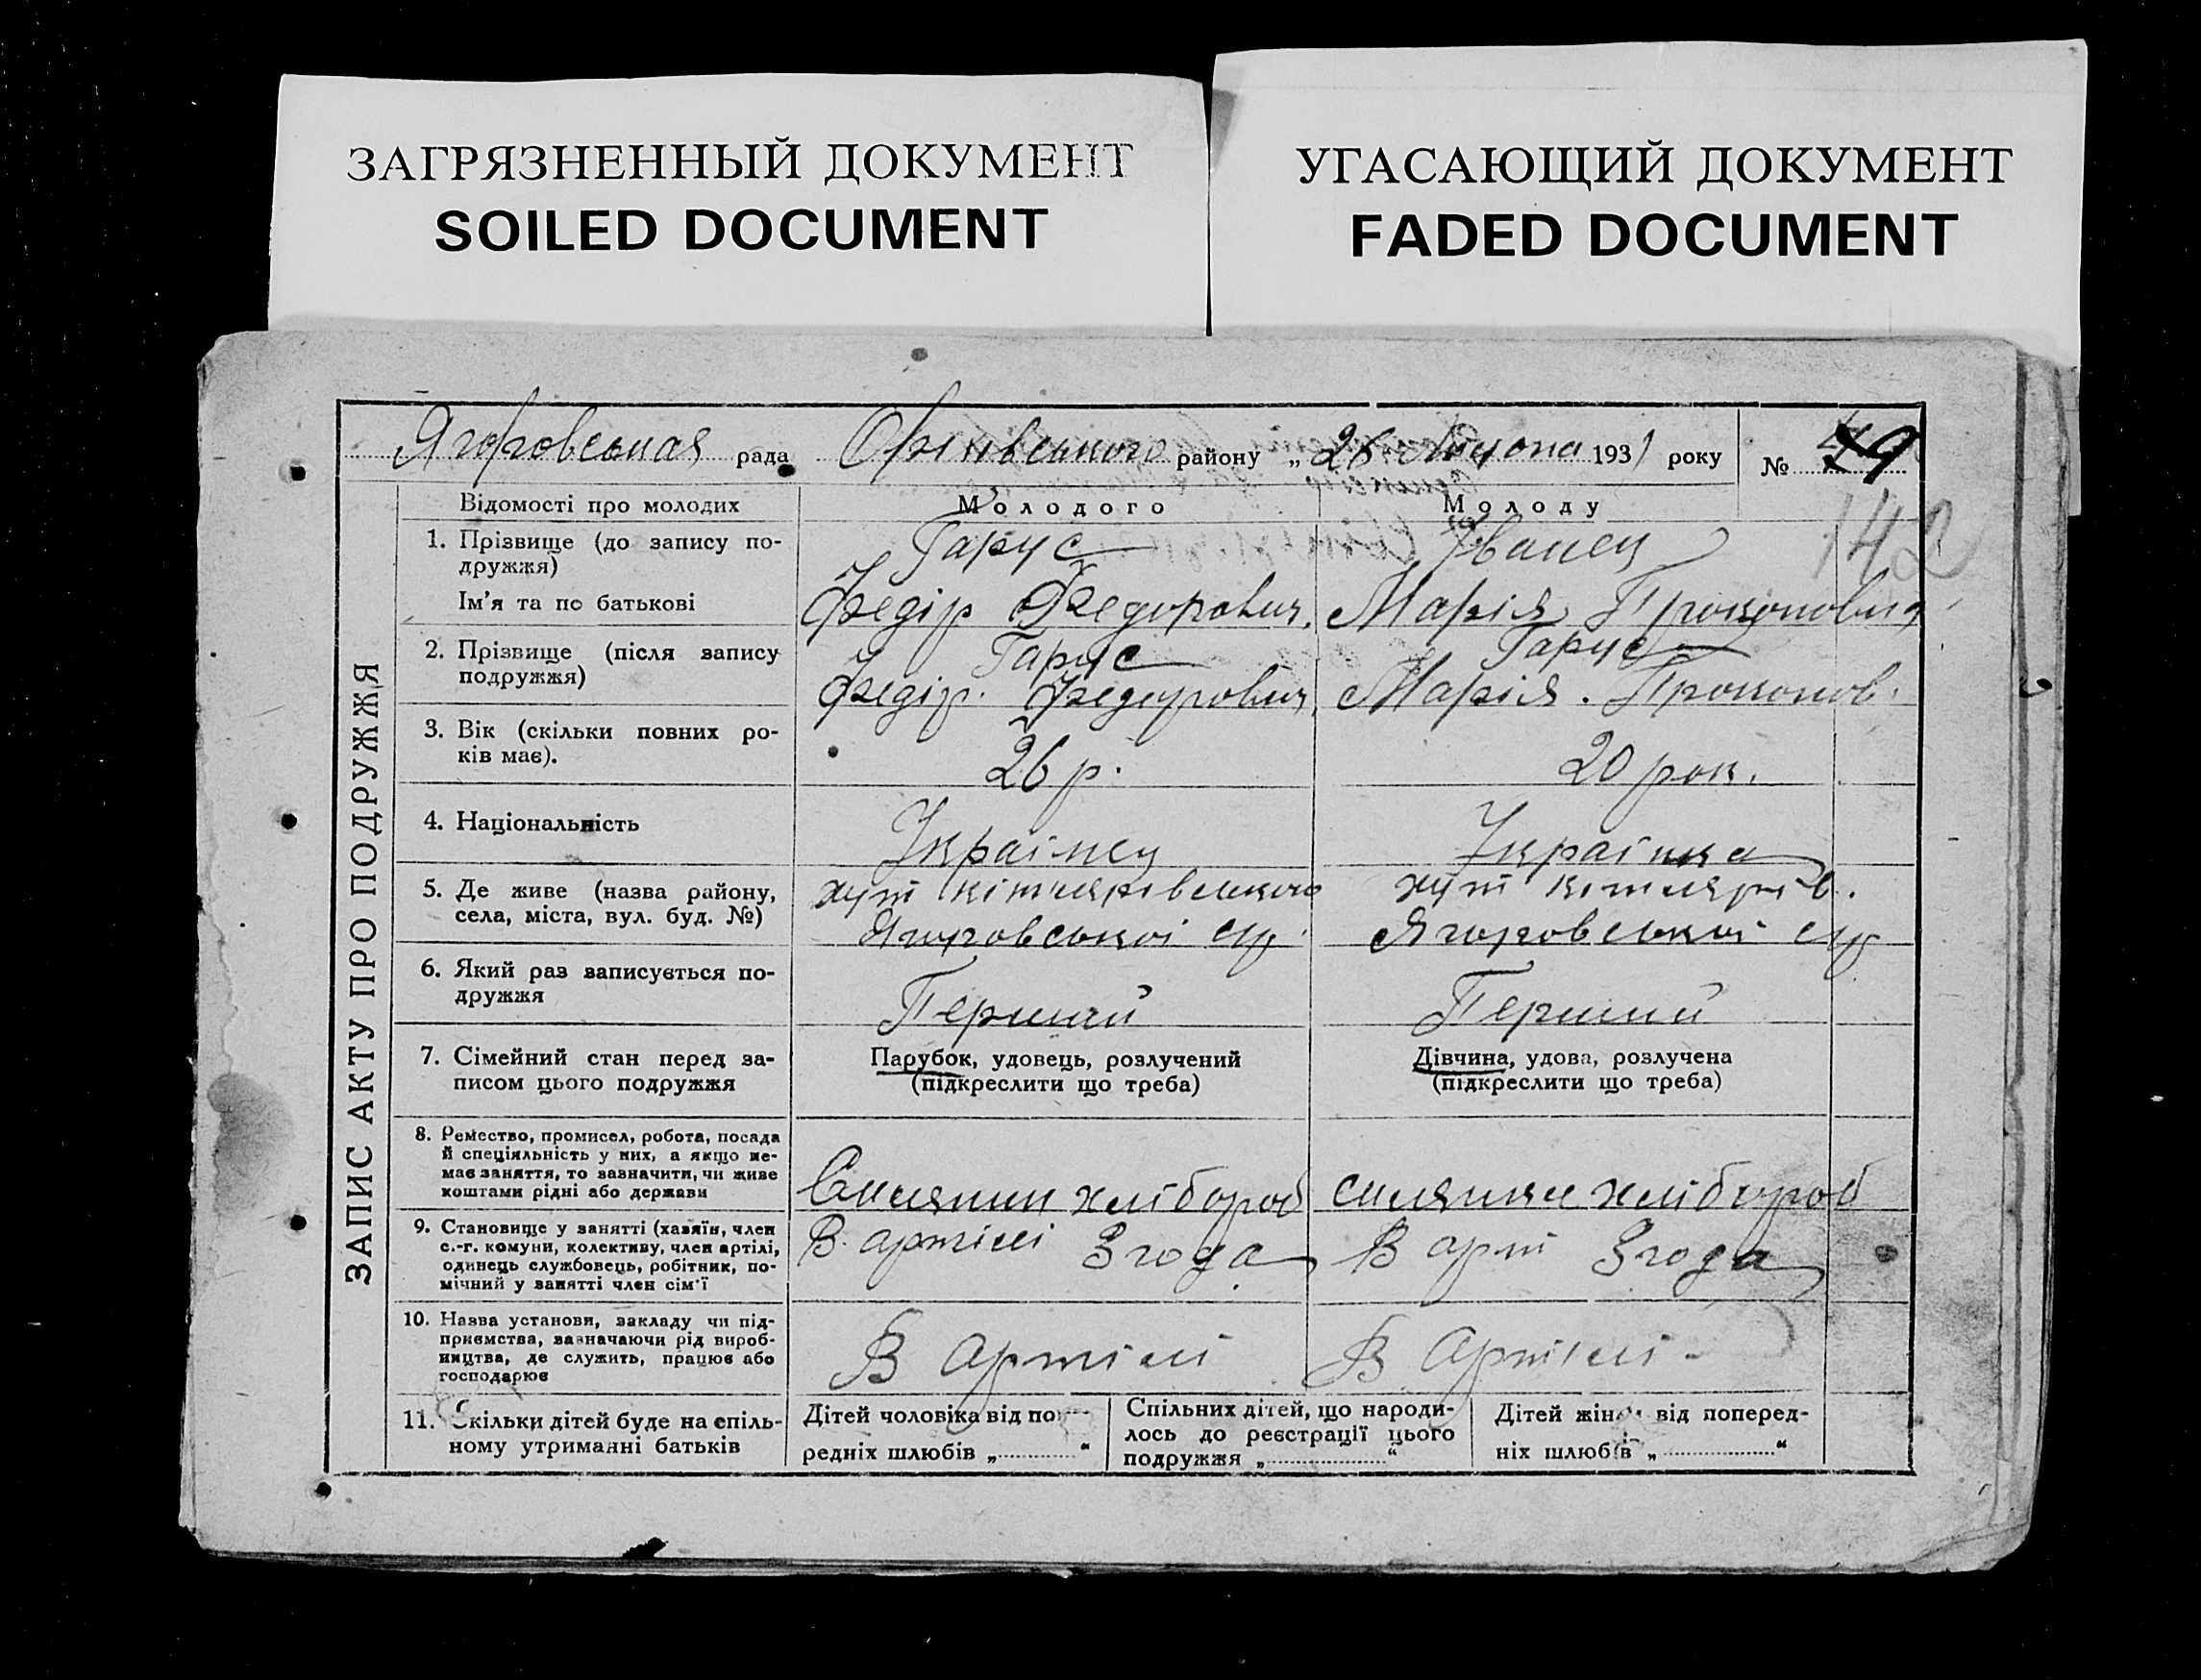 ЗАГРЯЗНЕННЫЙ ДОКУМЕНТ
SOILED DOCUMENT
УГАСАЮЩИЙ ДОКУМЕНТ
FADED DOCUMENT
рада району „26 1931 року № 49
142
ЗАПИС АКТУ ПРО ПОДРУЖЖЯ
Відомості про молодих Молодого Молоду
1. Прізвище (до запису по-
дружжя)
Гарус Іванец
Ім'я та по батькові
Федір Федорович. Марія Прокоповна
2. Прізвище (після запису
подружжя)
Гарус Гарус
Федір. Федорович Марія. Прокопов.
3. Вік (скільки повних ро-
ків має).
26 р. 20 рок.
4. Національність
Українец Українка
5. Де живе (назва району,
села, міста, вул. буд. №)
хут хут
Ягоровської с/р Ягоровської с/р
6. Який раз записується по-
дружжя
Перший Перший
7. Сімейний стан перед за-
писом цього подружжя
Парубок, удовець, розлучений
(підкреслити що треба)
Дівчина, удова, розлучена
(підкреслити що треба)
8. Ремество, промисел, робота, посада
й спеціяльність у них, а якщо не-
має заняття, то зазначити, чи живе
коштами рідні або держави
Силянин хлібороб силянка хлібороб
9. Становище у занятті (хазяїн, член
с.-г. комуни, колективу, член артілі,
одинець службовець, робітник, по-
мічний у занятті член сім'ї
В артілі Згода В арт Згода
10. Назва установи, закладу чи під-
приємства, зазначаючи рід вироб-
ництва, де служить, працює або
господарює
В Артілі В Артілі
11. Скільки дітей буде на спіль-
ному утриманні батьків
Дітей чоловіка від по
редніх шлюбів „ “
Спільних дітей, що народи-
лось до реєстрації цього
подружжя „ “
Дітей жінки від поперед-
ніх шлюбів „ “